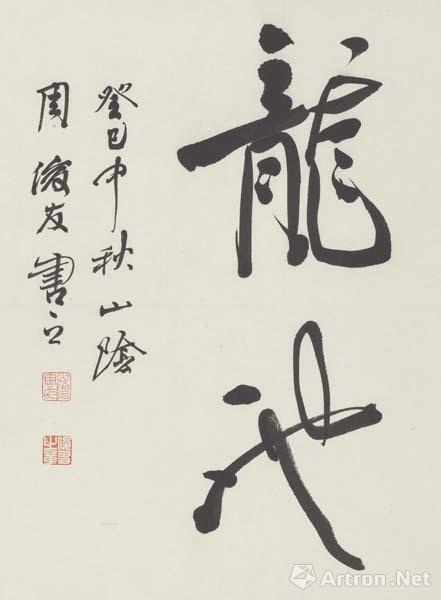 龍池
癸巳中秋山陰
周俊友書之
Artron.Net